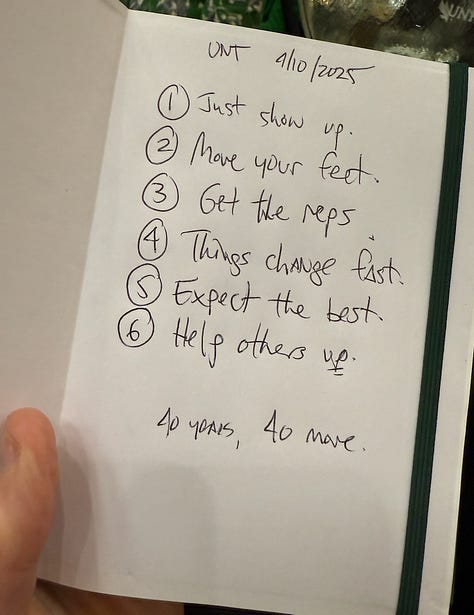 UNT 4/10/2025
① Just show up.
② Move your feet.
③ Get the reps.
④ Things change fast.
⑤ Expect the best.
⑥ Help others up.
40 years, 40 more.
UNT